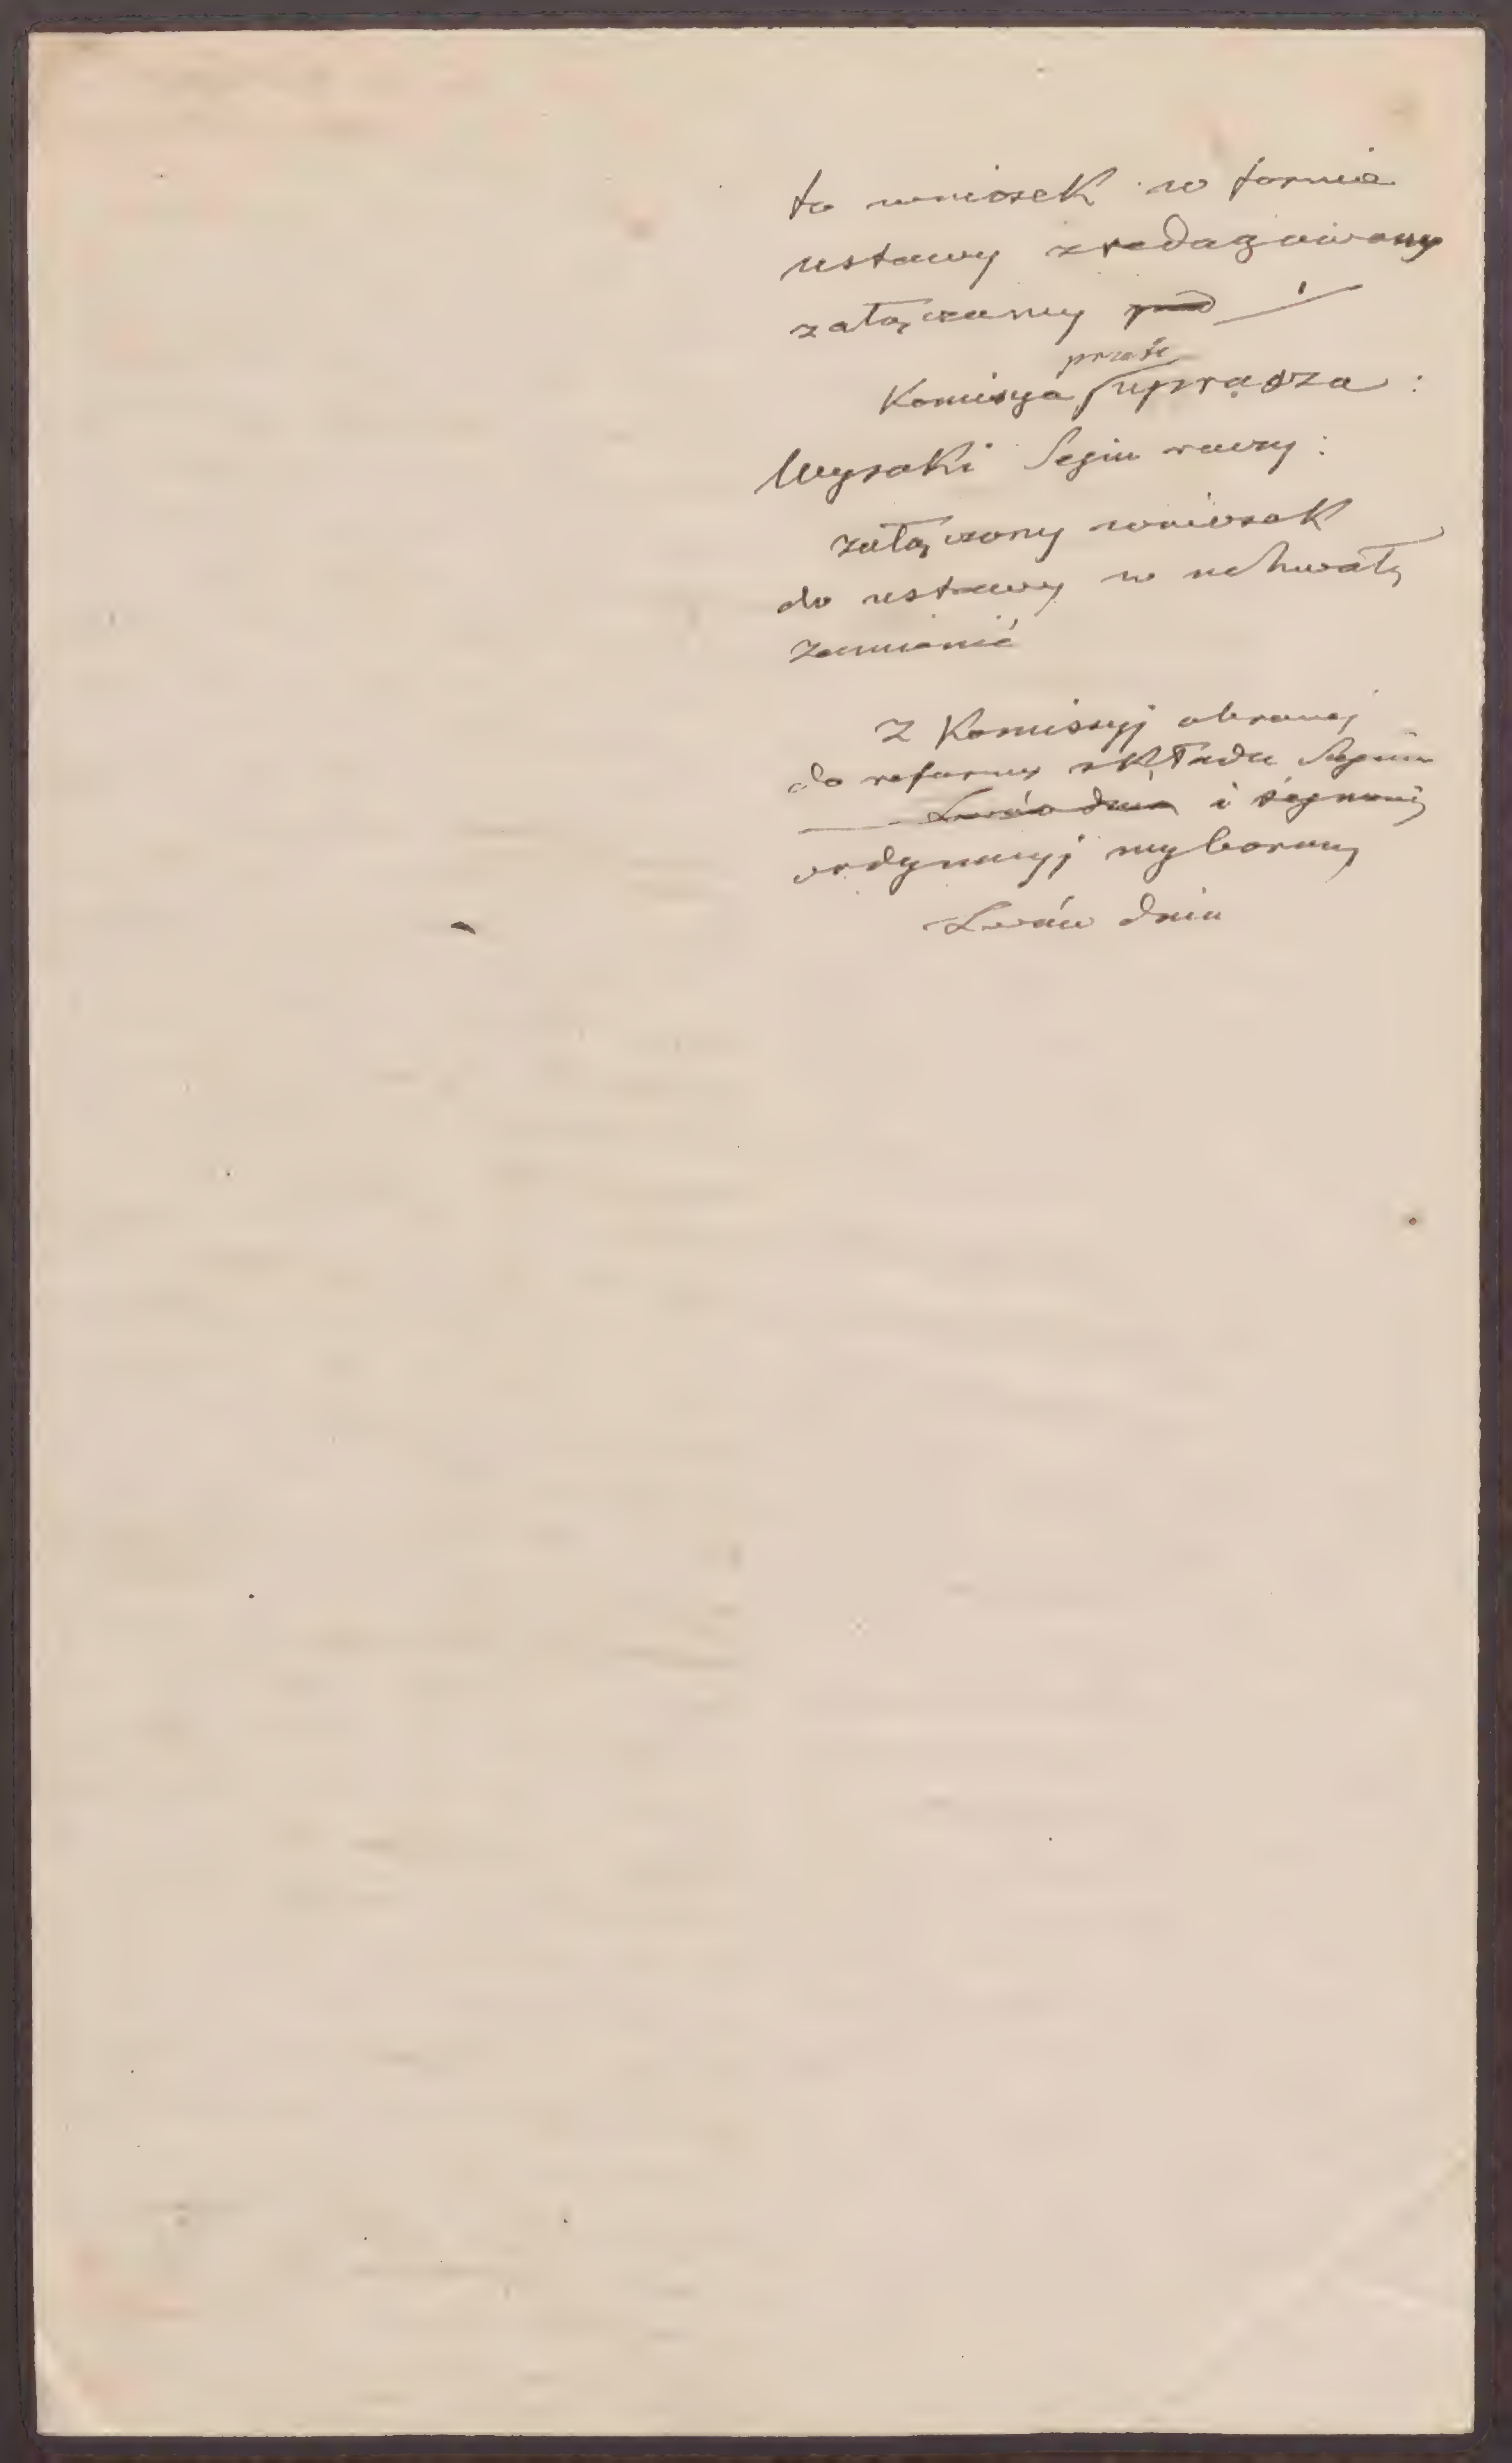 to wniosek w formie
ustawy zredagowany
załączamy ~~pod~~ ./
przeto
Komisya uprasza :
Wysoki Sejm raczy :
załączony wniosek
do ustawy w uchwałę
zamienić
Z Komisyj obranej
do reformy składu Sejmu
~~Lwów dnia~~ i sejmowej
ordynacyj wyborczej
Lwów dnia